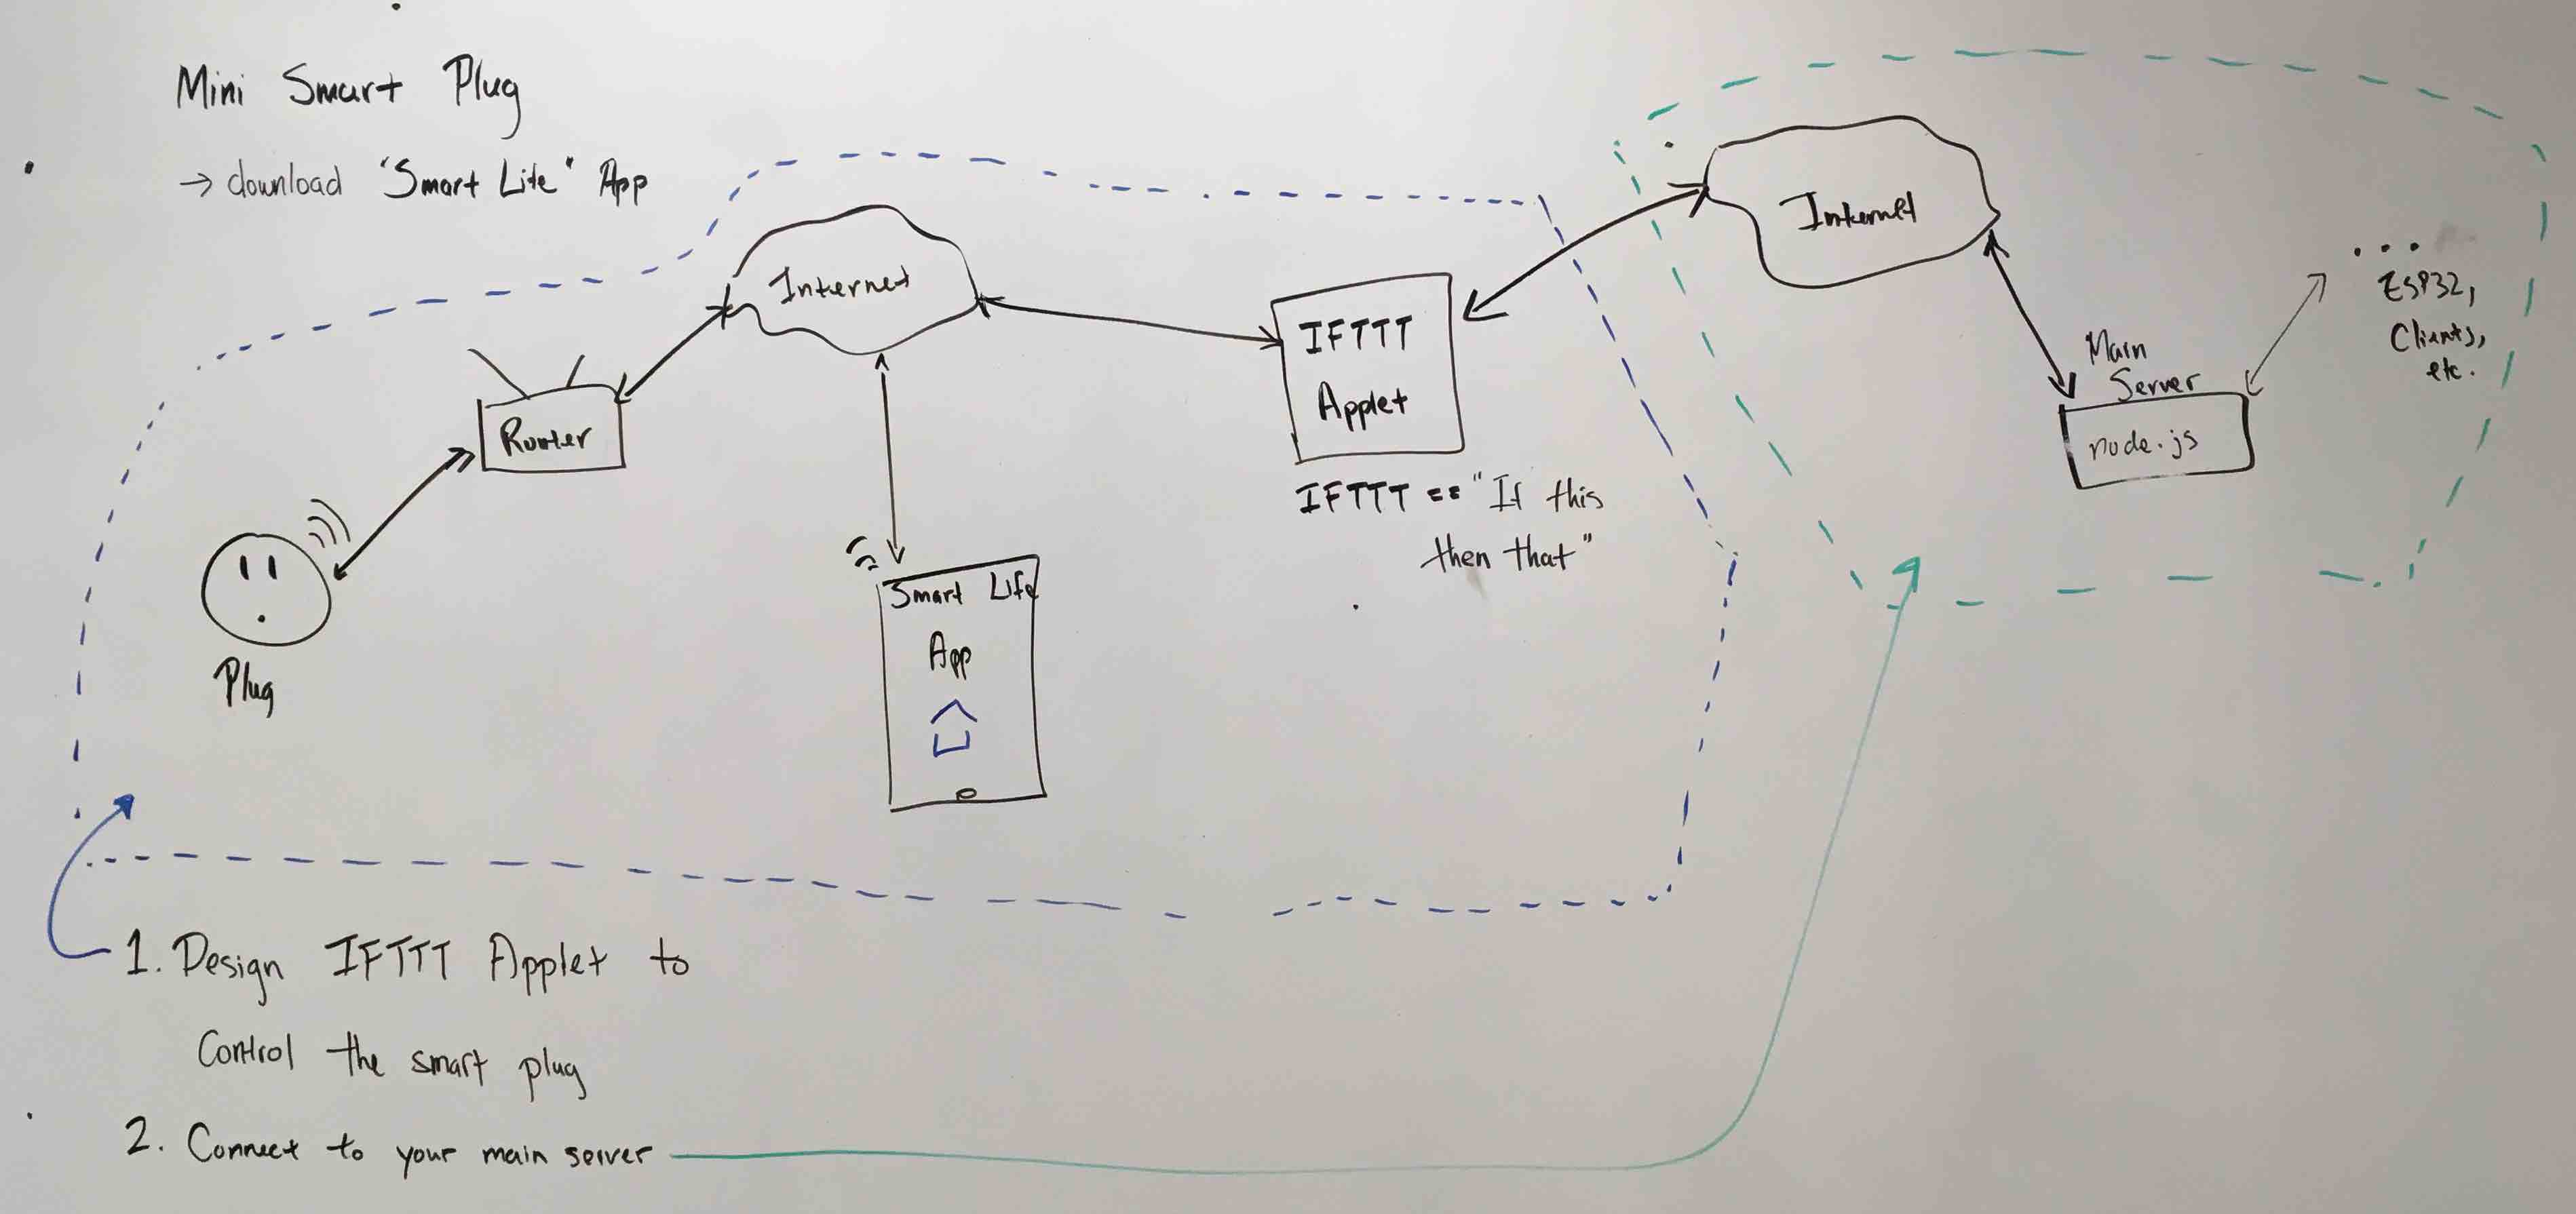 Mini Smart Plug
→ download "Smart Life" App
Internet
Internet
Router
IFTTT
Applet
IFTTT == "If this
then that"
Plug
Smart Life
App
Main
Server
node.js
...
ESP32,
Clients,
etc.
1. Design IFTTT Applet to
Control the smart plug
2. Connect to your main server